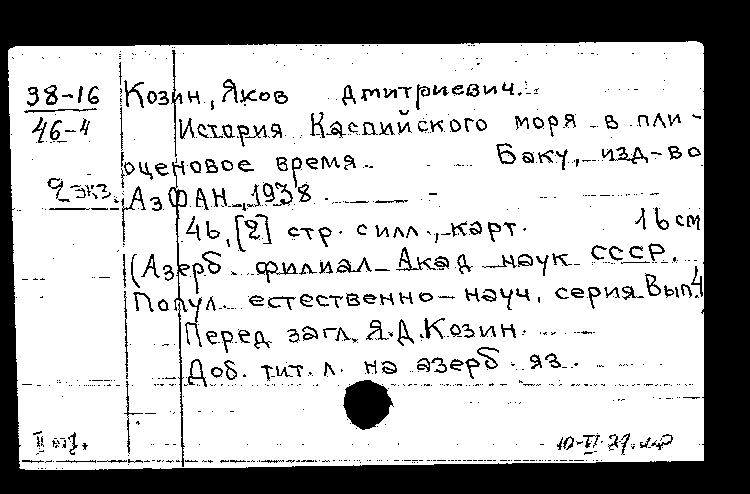 38-16 Козин, Яков Дмитриевич.
46-4 История Каспийского моря в пли-
оценовое время. Баку, изд-во
2 экз. АзФАН, 1938.
46, [2] стр. с илл., карт. 16 см
(Азерб. филиал Акад наук СССР.
Попул. естественно-науч. серия Вып. 4
Перед загл. Я.Д. Козин.
Доб. тит. л. на азерб. яз.